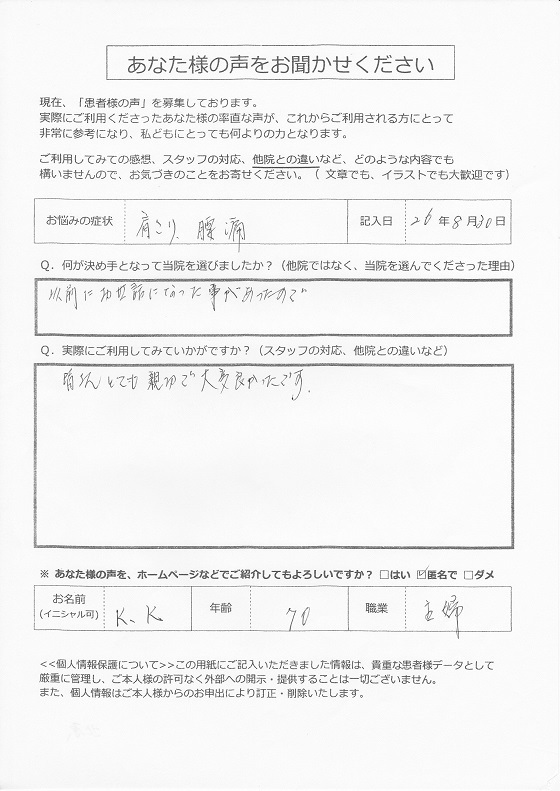 あなた様の声をお聞かせください
現在、「患者様の声」を募集しております。
実際にご利用くださったあなた様の率直な声が、これからご利用される方にとって
非常に参考になり、私どもにとっても何よりの力となります。
ご利用してみての感想、スタッフの対応、他院との違いなど、どのような内容でも
構いませんので、お気づきのことをお寄せください。（ 文章でも、イラストでも大歓迎です）
お悩みの症状 肩こり、腰痛 記入日 26年8月30日
Q．何が決め手となって当院を選びましたか？（他院ではなく、当院を選んでくださった理由）
以前にお世話になった事があったので
Q．実際にご利用してみていかがですか？（スタッフの対応、他院との違いなど）
皆さんとても親切で大変良かったです.
※ あなた様の声を、ホームページなどでご紹介してもよろしいですか？ □はい ☑匿名で □ダメ
お名前 K、K 年齢 70 職業 主婦
(イニシャル可)
<<個人情報保護について>>この用紙にご記入いただきました情報は、貴重な患者様データとして
厳重に管理し、ご本人様の許可なく外部への開示・提供することは一切ございません。
また、個人情報はご本人様からのお申出により訂正・削除いたします。